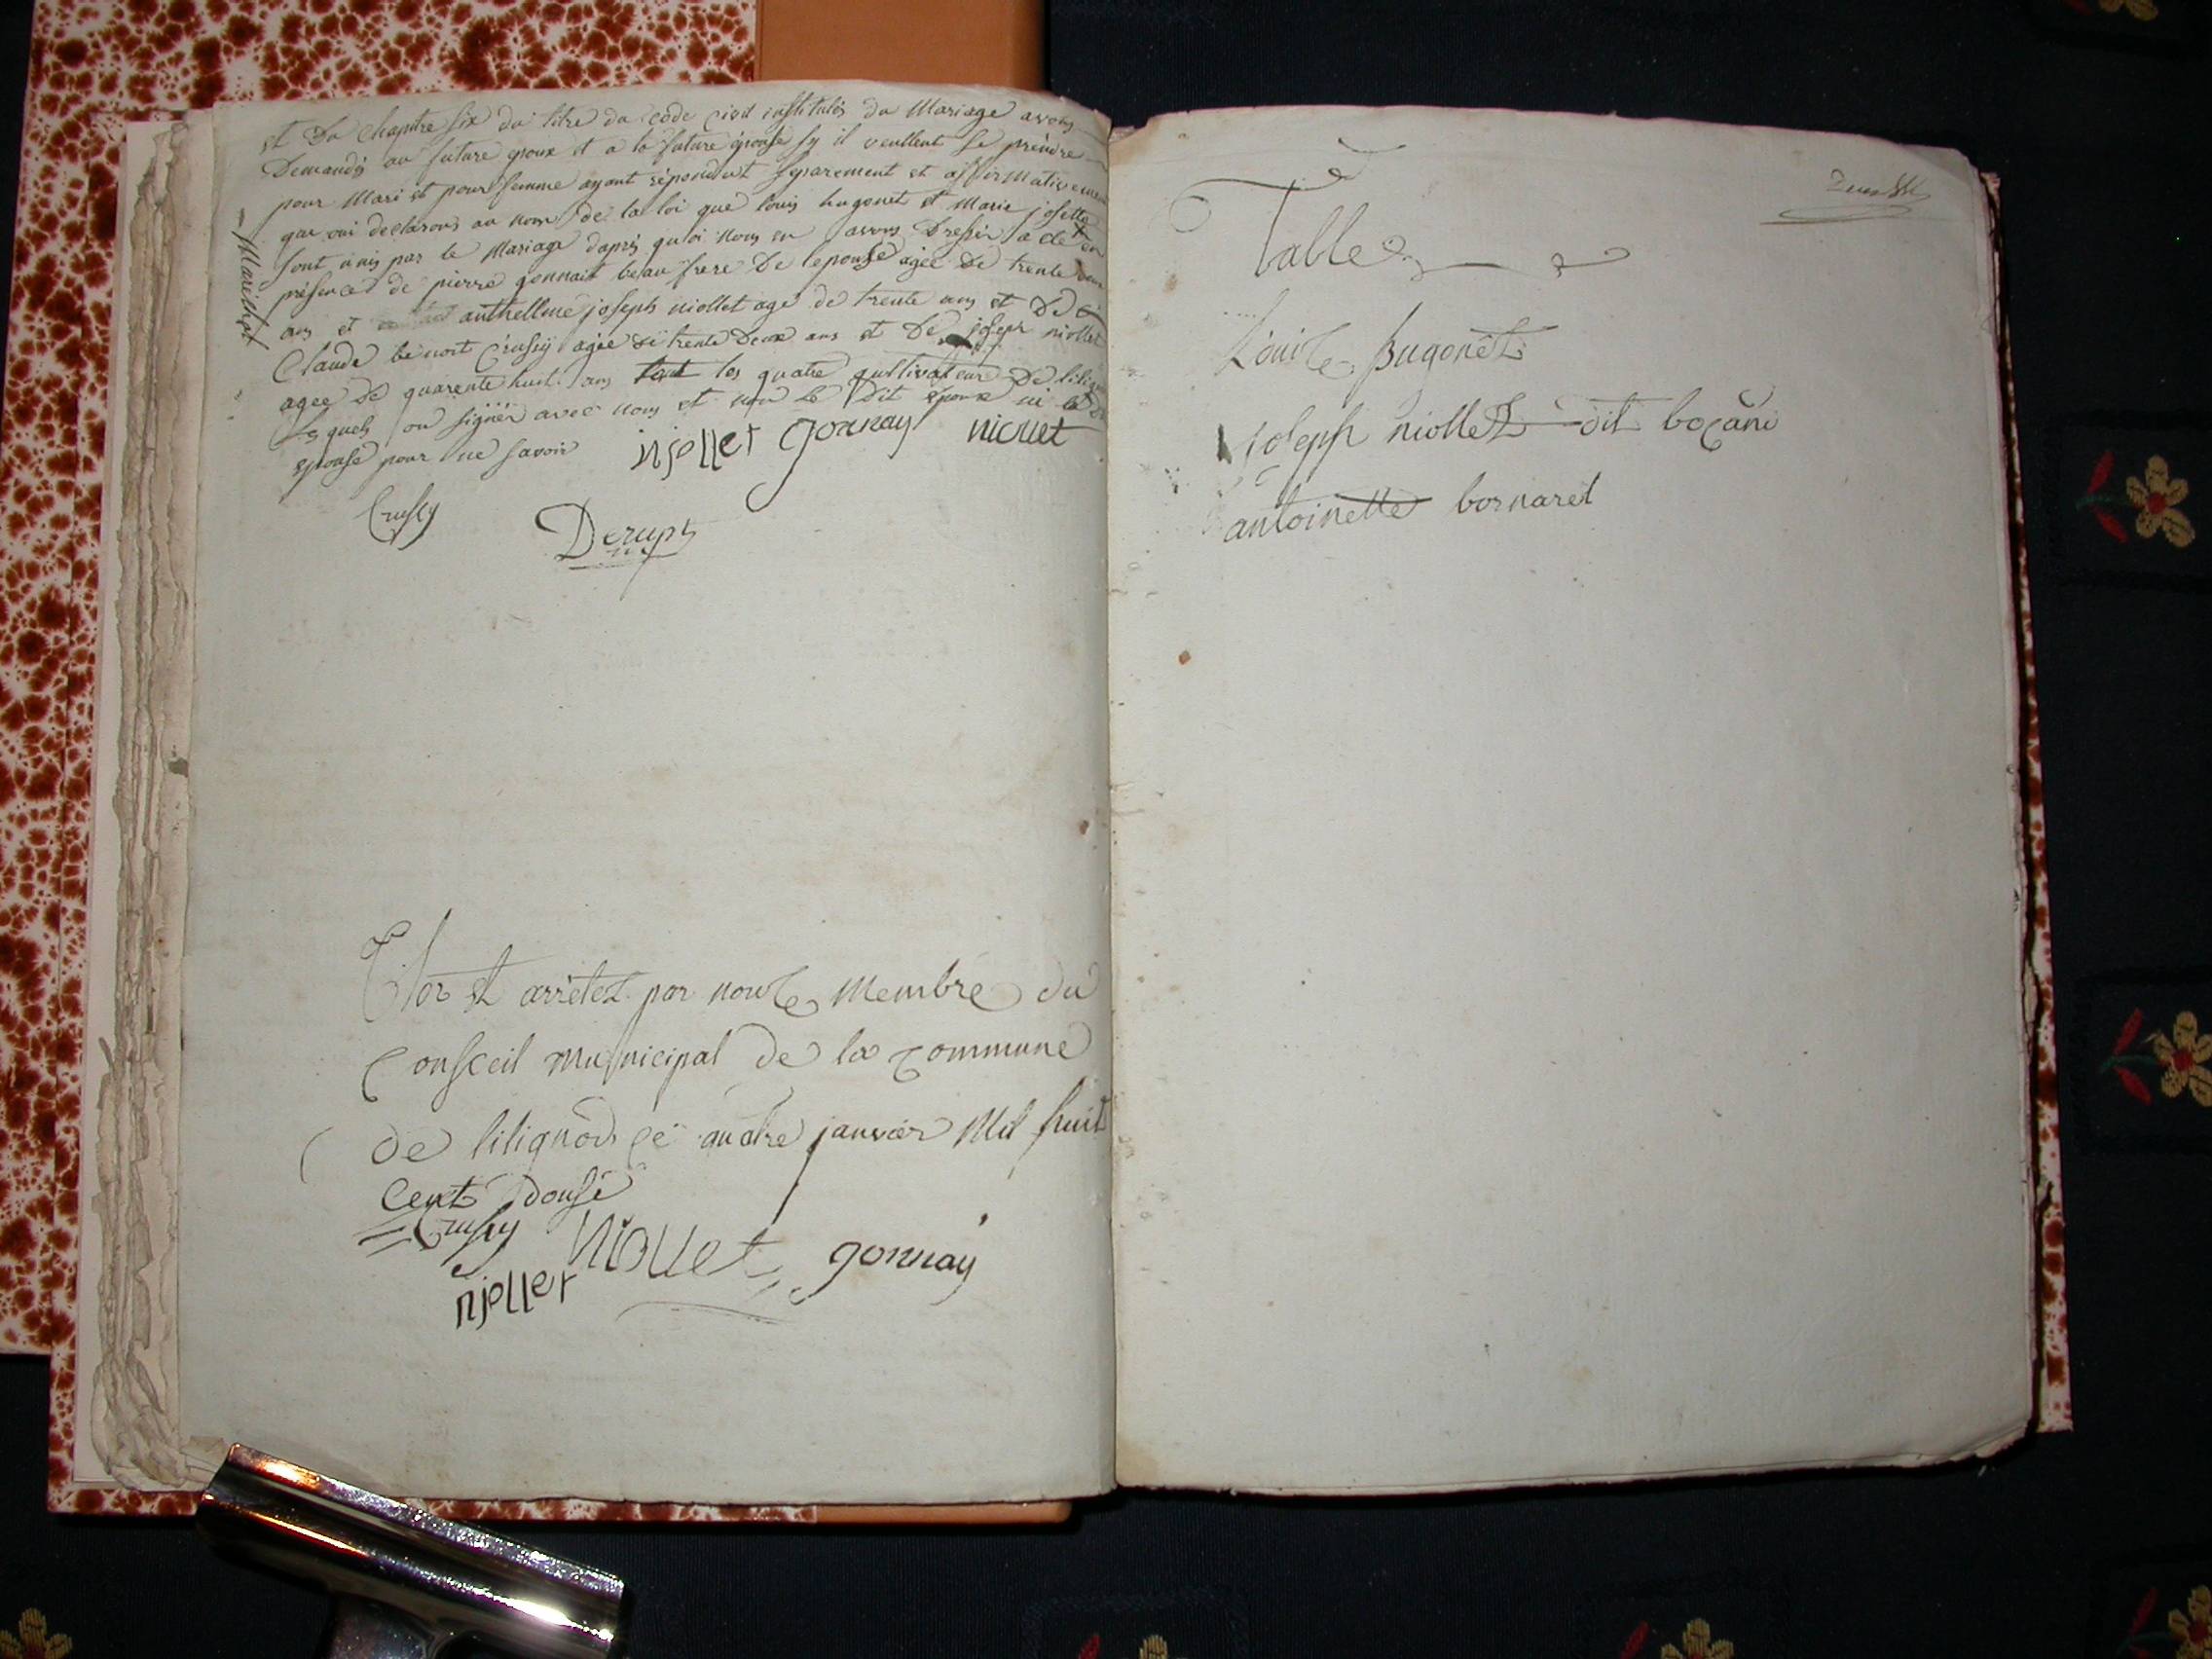 et Du chapitre six du titre du code civil institulés du Mariage avons
Demandés au future epoux et a la future épouse sy il veullent se prendre
pour Mari et pour femme ayant répondut séparement et affirmativement
que oui declarons au nom de la loi que louis hugonet et Marie josette
Marichot
sont unis par le Mariage daprés quoi nous en avons Dressér acte en
présence de pierre gonnait beau frere De lepouse agée De trente
ans et anthellme joseph niollet age de trente ans et De
Claude benoit Crussy agée De trente Deux ans et De joseph niollet
agee De quarente huit ans tout les quatre qultivateur De
lesquels on signér avec nous et non le Dit Epoux ni
epouse pour ne savoir
njollet gonnay niollet
Crussy
Derups
Clos et arrêtez par nous Membre du
Conseil Municipal de la Commune
de lilignod ce quatre janvier Mil huit
Cent douse
Crussy
niollet gonnay
njollet
Table
Louis hugonet
joseph niollet dit boçani
antoinette bornaret